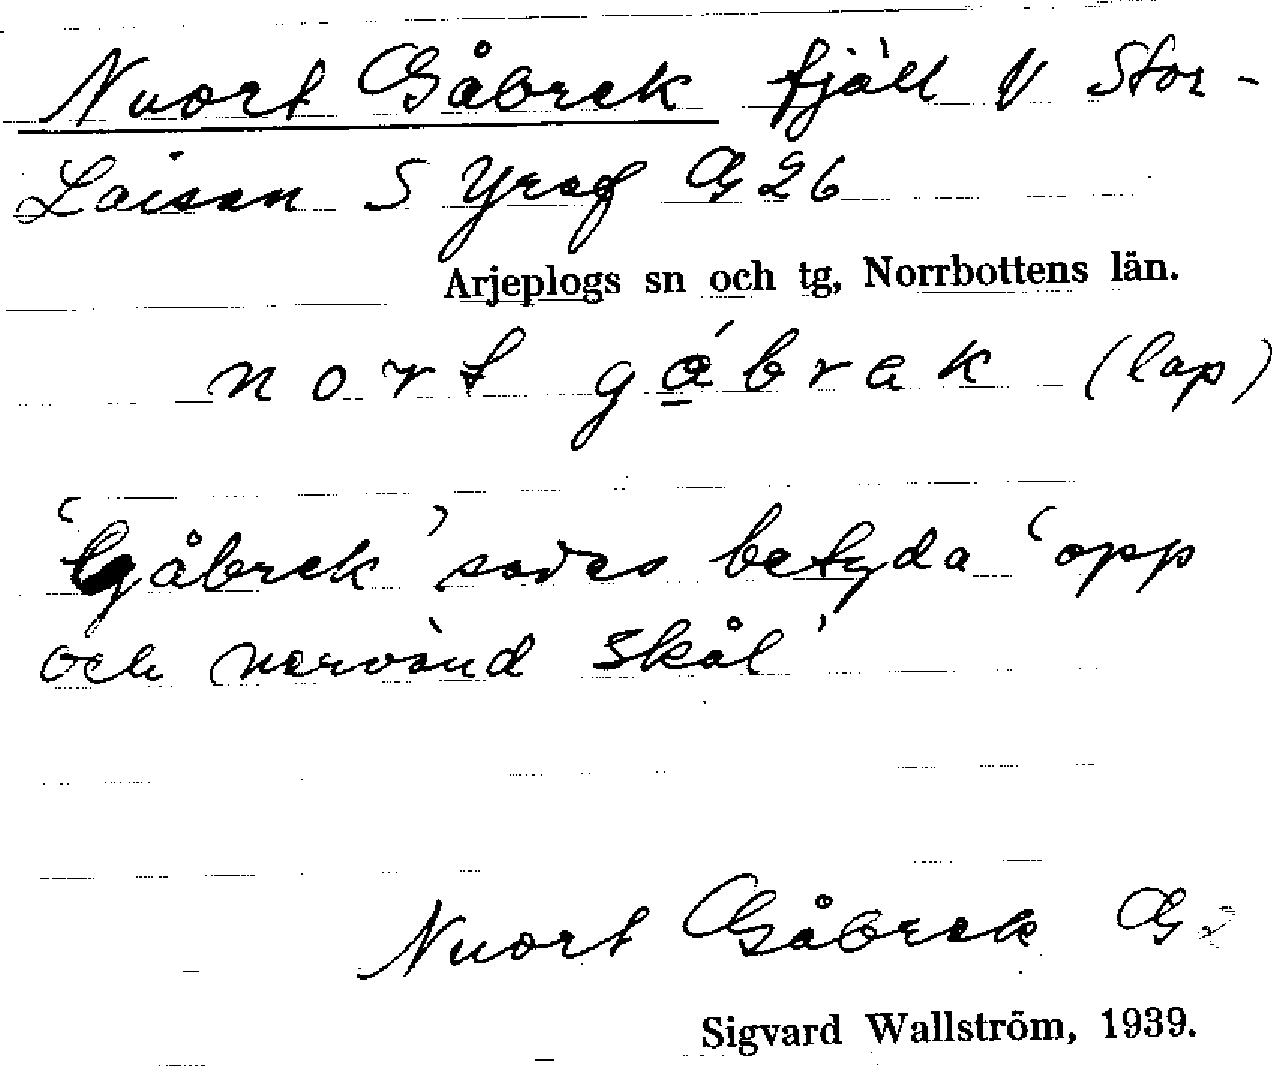 Nuort Gåbrek fjäll V Stor-
Laisan S Yraf G 26
Arjeplogs sn och tg, Norrbottens län.
nort gábrak (lap)
'Gåbrek' sades betyda 'opp
och nervänd skål'
Nuort Gåbrek G2
Sigvard Wallström, 1939.